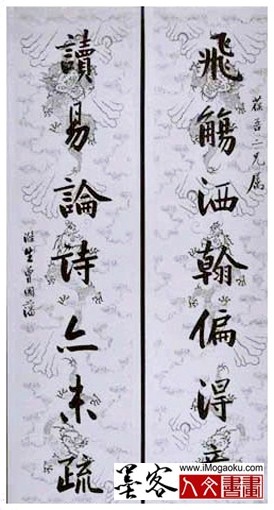 吾二兄属
飛觴洒翰偏得
讀易論詩亦未疏
滌生曾國藩
www.iMogaoku.com
墨客
人文書畫